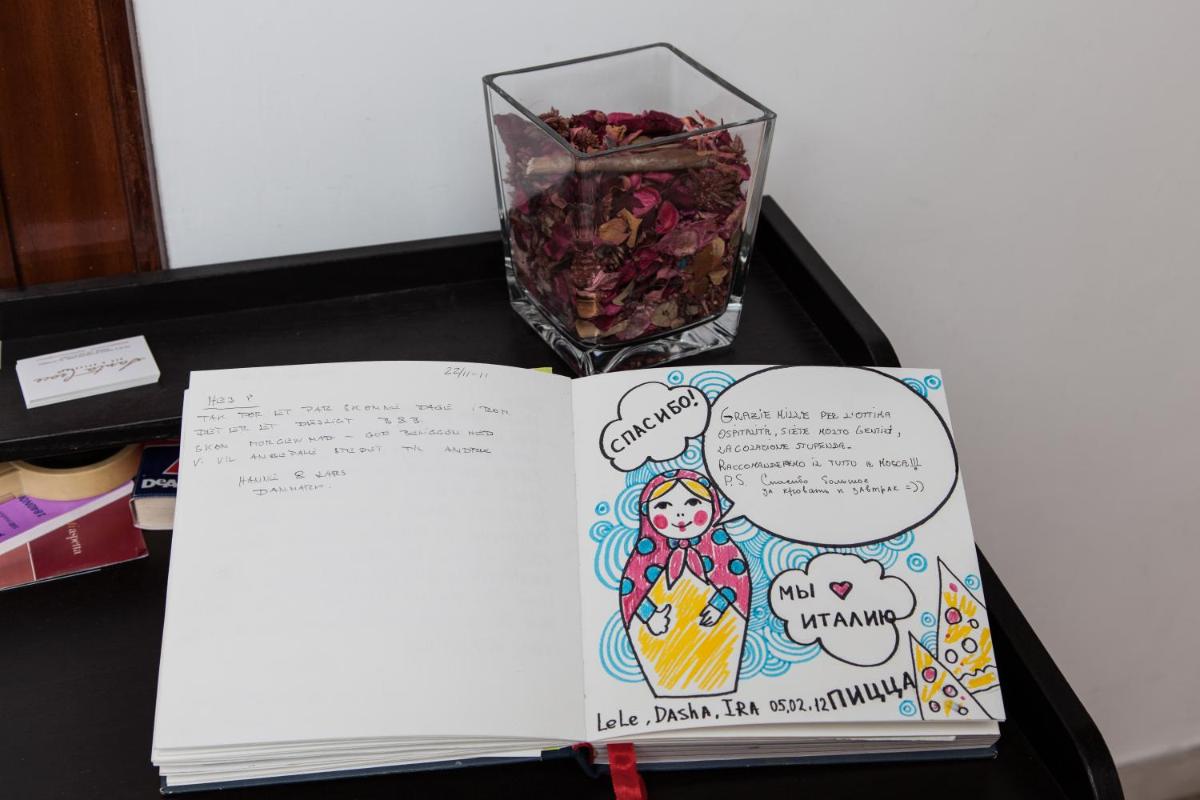 22/11-11
HEJ
TAK FOR ET PAR SKØNNE DAGE I ROM
DET ER ET DEJLIGT B&B.
SKØN MORGENMAD – GOD BELIGGENHED
VI VIL ANBEFALE STEDET TIL ANDRE
HANNE & LARS
DANMARK.
СПАСИБО!
GRAZIE MILLE PER L'OTTIMA
OSPITALITÀ, SIETE MOLTO GENTILI,
LA COLAZIONE STUPENDA.
RACCOMANDEREMO IL TUTTO A MOSCA!!!
P.S. Спасибо большое
за кровать и завтрак =))
МЫ ♥
ИТАЛИЮ
ПИЦЦА
LeLe, DASHA, IRA 05.02.12
Santa Croce
DeA